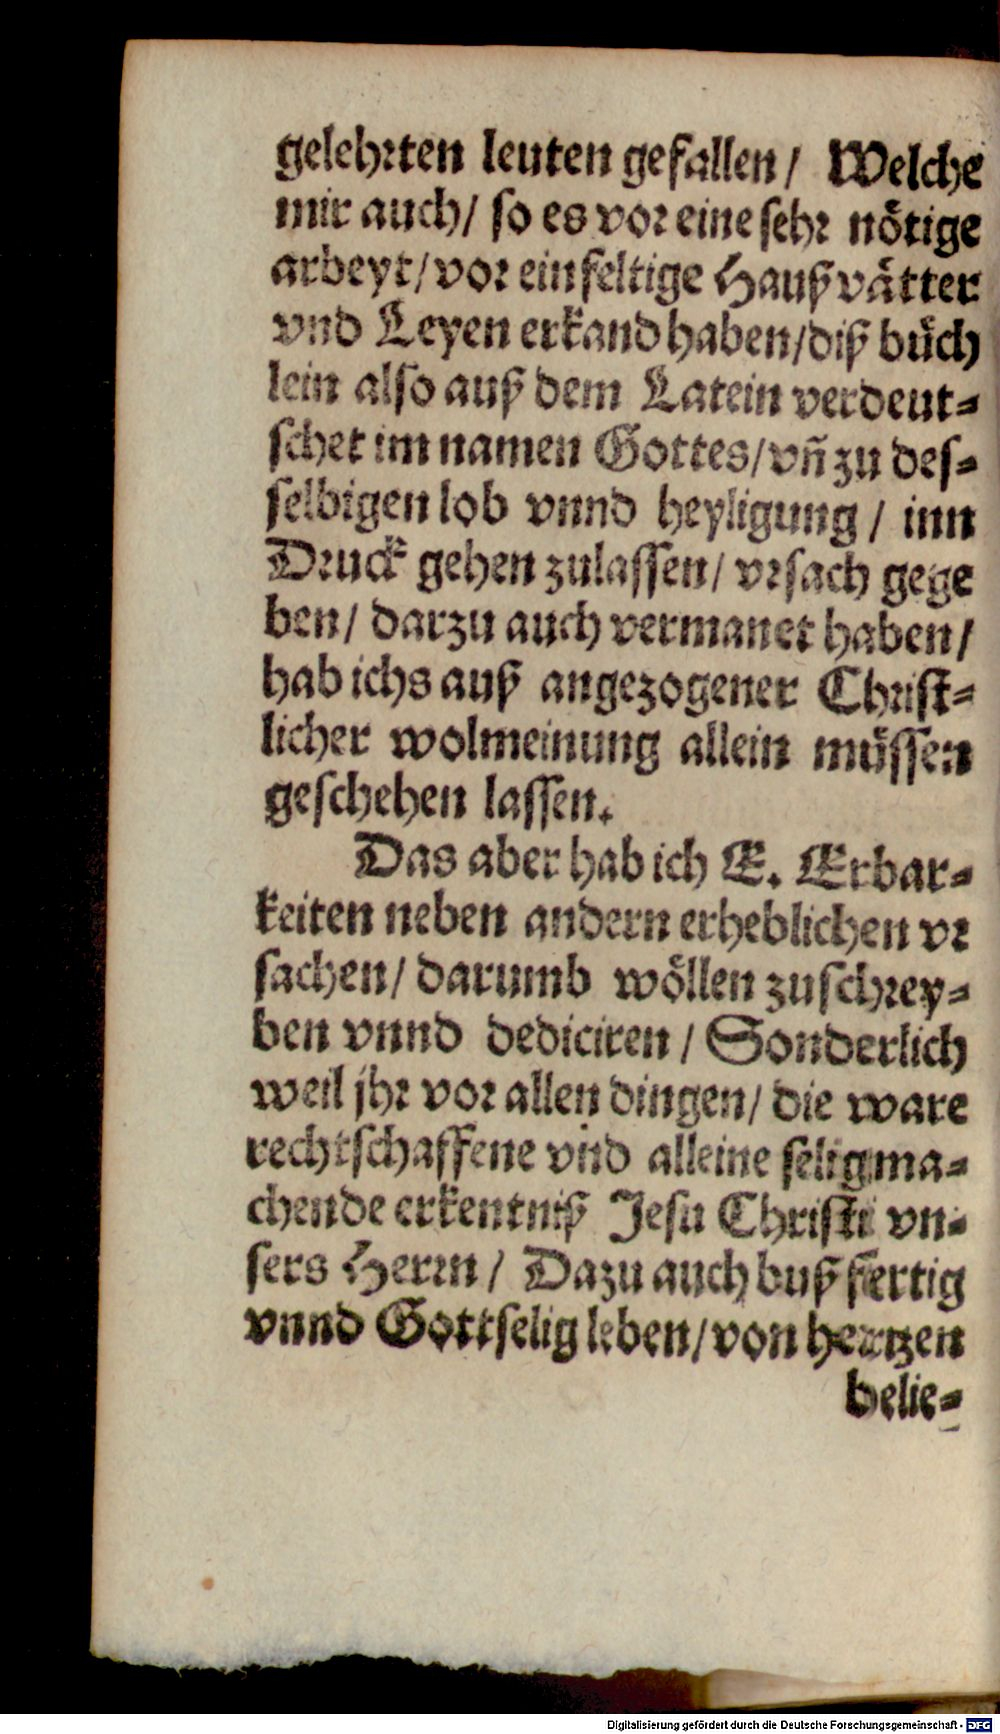 gelehrten leuten gefallen / Welche
mir auch / so es vor eine sehr nötige
arbeyt / vor einfeltige Haußvätter
vnd Leyen erkand haben / diß büch
lein also auß dem Latein verdeut-
schet im namen Gottes / vñ zu des-
selbigen lob vnnd heyligung / inn
Druck gehen zulassen / vrsach gege
ben / darzu auch vermanet haben /
hab ichs auß angezogener Christ-
licher wolmeinung allein müssen
geschehen lassen.
Das aber hab ich E. Erbar-
keiten neben andern erheblichen vr
sachen / darumb wöllen zuschrey-
ben vnnd dediciren / Sonderlich
weil jhr vor allen dingen / die ware
rechtschaffene vnd alleine seligma-
chende erkentniß Jesu Christi vn-
sers Herrn / Dazu auch bußfertig
vnnd Gottselig leben / von hertzen
belie-
Digitalisierung gefördert durch die Deutsche Forschungsgemeinschaft - DFG